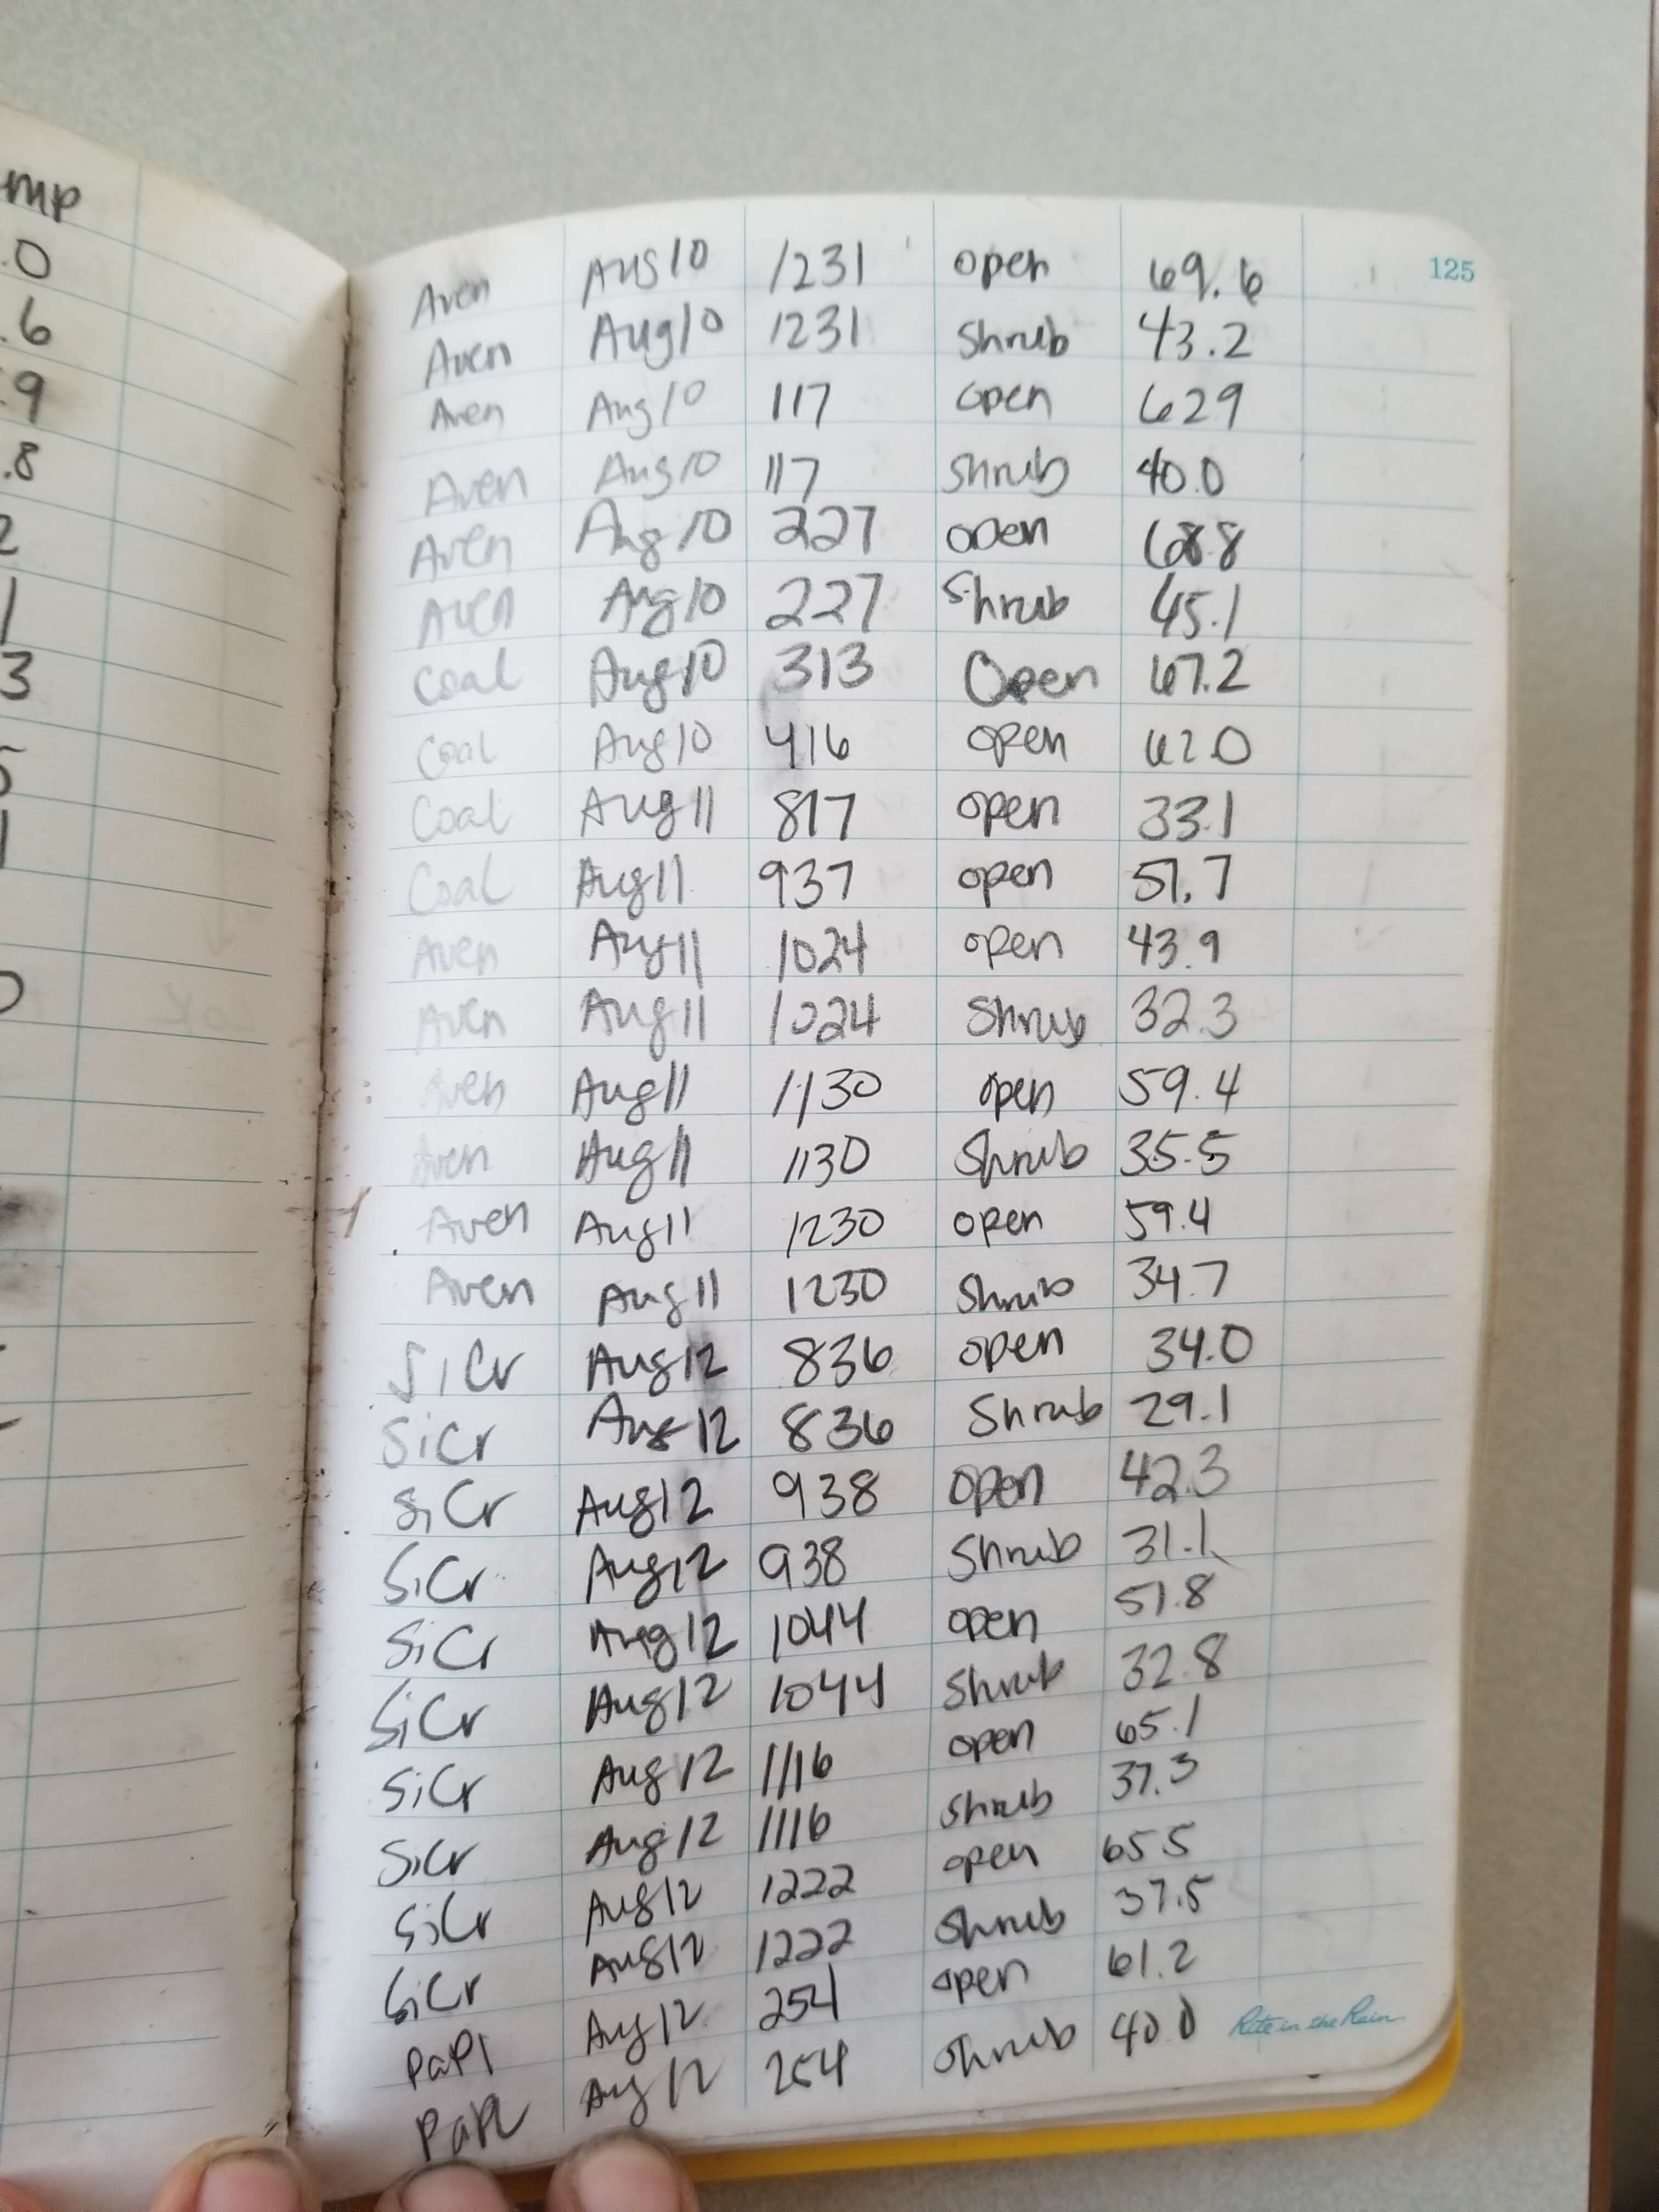 mp
.0
.6
.9
.8
2
1
3
5
1
0
125
Aven Aug10 1231 open 69.6
Aven Aug10 1231 Shrub 43.2
Aven Aug10 117 open 629
Aven Aug10 117 Shrub 40.0
Aven Aug10 227 open 68.8
Aven Aug10 227 Shrub 45.1
Coal Aug10 313 Open 67.2
Coal Aug10 416 open 620
Coal Aug11 817 open 33.1
Coal Aug11 937 open 51.7
Aven Aug11 1024 open 43.9
Aven Aug11 1024 Shrub 32.3
Aven Aug11 1130 open 59.4
Aven Aug11 1130 Shrub 35.5
Aven Aug11 1230 open 59.4
Aven Aug11 1230 Shrub 34.7
SiCr Aug12 836 open 34.0
SiCr Aug12 836 Shrub 29.1
SiCr Aug12 938 open 42.3
SiCr Aug12 938 Shrub 31.1
SiCr Aug12 1044 open 51.8
SiCr Aug12 1044 Shrub 32.8
SiCr Aug12 1116 open 65.1
SiCr Aug12 1116 Shrub 37.3
SiCr Aug12 1222 open 65.5
SiCr Aug12 1222 Shrub 37.5
PaPl Aug12 254 open 61.2
PaPl Aug12 254 Shrub 40.0
Rite in the Rain